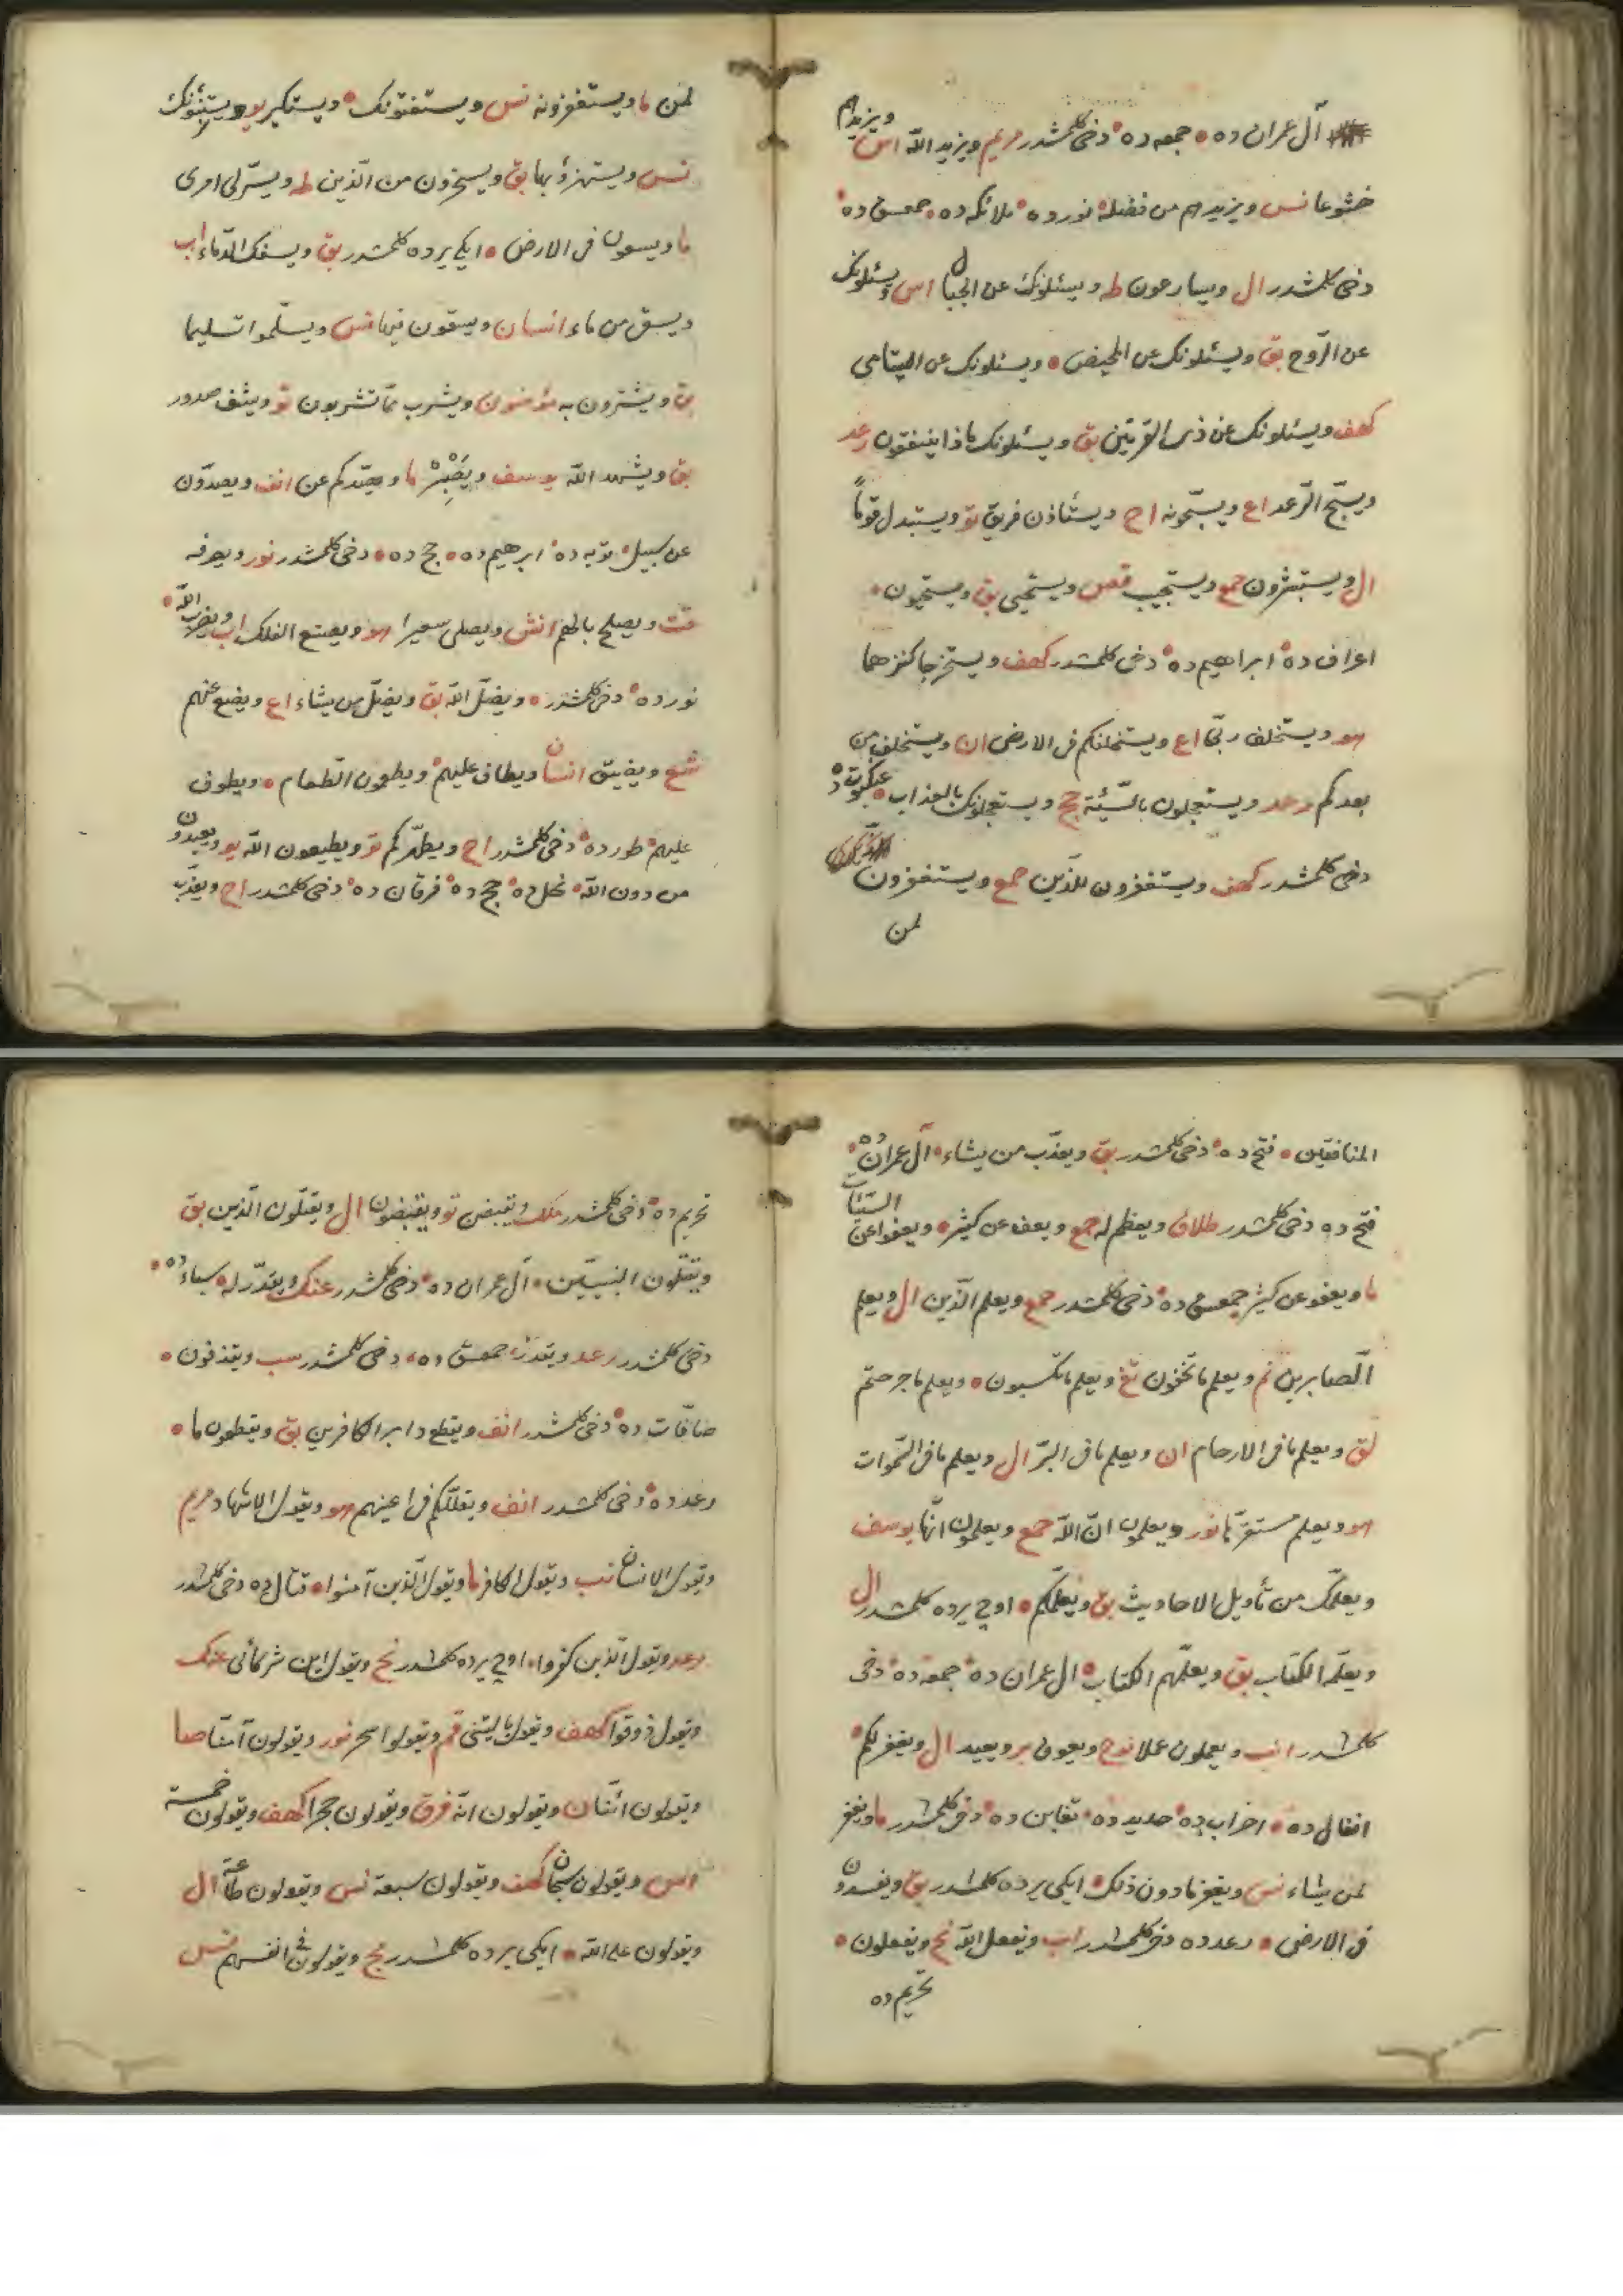 آل عمران ده • جمعه ده • دخى كلمشدر مريم ويزيد الله اس ويزيدهم
خشوعا نس ويزيدهم من فضله • نور ده • ملائكه ده • حمعسق ده •
دخى كلمشدر ال ويسارعون طه ويسئلونك عن الجبال اس ويسئلونك
عن الروح بق ويسئلونك عن المحيض • ويسئلونك عن اليتامى
كهف ويسئلونك عن ذى القرنين بق ويسئلونك ماذا ينفقون رعد
ويسبح الرعد اع ويسبحونه اح ويستأذن فريق تو ويستبدل قوماً
ال ويستبشرون حمع ويستجيب قصص ويستحيى بق ويستحيون •
اعراف ده • ابراهيم ده • دخى كلمشدر كهف ويستخرجا كنزهما
هو ويستخلف ربى اع ويستخلفكم فى الارض ان ويستخلف من
بعدكم رعد ويستعجلون بالسيئة حج ويستعجلونك بالعذاب • عنكبوت ده
دخى كلمشدر كهف ويستغفرون للذين حمع ويستغفرون
لمن
لمن ما ويستغفرونه نس ويستفتونك • ويستكبر يو ويستنبؤنك
نس ويستهزؤ بها بق ويسخرون من الذين طه ويسر لى امرى
ما ويسعون فى الارض • ايكى يرده كلمشدر بق ويسفك الدماء اب
ويسقى من ماء انسان ويسقون فيها نس ويسلموا تسليما
بق ويشترون به مؤمنون ويشرب مما تشربون تو ويشف صدور
بق ويشهد الله يوسف ويصبر ما ويصدكم عن انف ويصدون
عن سبيل • توبه ده • ابرهيم ده • حج ده • دخى كلمشدر نور ويصرفه
قت ويصلح بالهم انش ويصلى سعيرا هو ويصنع الفلك اب ويضرب الله •
نور ده • دخى كلمشدر • ويضل الله بق ويضل من يشاء اع ويضع عنهم
شع ويضيق انسان ويطاف عليهم • ويطعمون الطعام • ويطوف
عليهم • طور ده • دخى كلمشدر اح ويطهركم تو ويطيعون الله يو ويعبدون
من دون الله • نحل ده • حج ده • فرقان ده • دخى كلمشدر اح ويعذب
المنافقين • فتح ده • دخى كلمشدر بق ويعذب من يشاء • آل عمران ده •
فتح ده دخى كلمشدر طلاق ويعظم له جمع ويعف عن كثير • ويعفوا عن السيئات
ما ويعفو عن كثير حمعسق ده • دخى كلمشدر حمع ويعلم الذين ال ويعلم
الصابرين نم ويعلم ما تخفون تغ ويعلم ما تكسبون • ويعلم ما جرحتم
لق ويعلم ما فى الارحام ان ويعلم ما فى البر ال ويعلم ما فى السموات
هو ويعلم مستقرها نور ويعلمون ان الله حمع ويعلمون انها يوسف
ويعلمك من تأويل الاحاديث بق ويعلمكم • اوچ يرده كلمشدر ال
ويعلمه الكتاب بق ويعلمهم الكتاب • ال عمران ده • جمعه ده • دخى
كلمشدر انب ويعملون عملا نوح ويعوق بر ويعيد ال ويغفر لكم •
انفال ده • احزاب ده • حديد ده • تغابن ده • دخى كلمشدر ما ويغفر
لمن يشاء نس ويغفر ما دون ذلك • ايكى يرده كلمشدر بق ويفسدون
فى الارض • رعد ده دخى كلمشدر اب ويفعل الله نح ويفعلون •
تحريم ده
تحريم ده • دخى كلمشدر ملك ويقبضن تو ويقبضون ال ويقتلون الذين بق
ويقتلون النبيين • آل عمران ده • دخى كلمشدر عنك ويقدر له • سباء ده •
دخى كلمشدر رعد ويقدر • حمعسق ده • دخى كلمشدر سب ويقذفون •
صافات ده • دخى كلمشدر انف ويقطع دابر الكافرين بق ويقطعون ما •
رعد ده • دخى كلمشدر انف ويقللكم فى اعينهم هو ويقول الاشهاد مريم
ويقول الانسان نب ويقول الكافر ما ويقول الذين آمنوا • قتال ده دخى كلمشدر
رعد ويقول الذين كفروا • اوچ يرده كلمشدر نح ويقول اين شركائى عنك
ويقول ذوقوا كهف ويقول يا ليتنى قم ويقولوا سحر نور ويقولون آمنا صا
ويقولون ائنا ن ويقولون انه فرق ويقولون حجرا كهف ويقولون خمسة
اس ويقولون سبحان كهف ويقولون سبعة نس ويقولون طاعة ال
ويقولون على الله • ايكى يرده كلمشدر مج ويقولون فى انفسهم نس